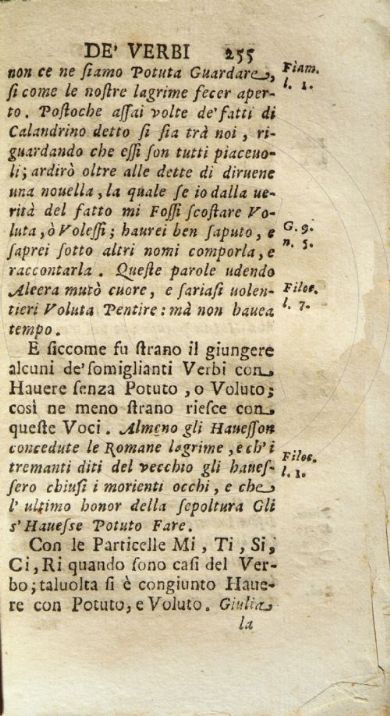 DE' VERBI 255
non ce ne siamo Potuta Guardare, Fiam.
si come le nostre lagrime fecer aper- l. 1.
to. Postoche assai volte de' fatti di
Calandrino detto si sia trà noi, ri-
guardando che essi son tutti piaceuo-
li; ardirò oltre alle dette di diruene
una nouella, la quale se io dalla ue-
rità del fatto mi Fossi scostare Vo-
luta, ò Volessi; haurei ben saputo, e G. 9.
saprei sotto altri nomi comporla, e n. 5.
raccontarla. Queste parole udendo
Alcera mutò cuore, e sariasi uolen- Filoc.
tieri Voluta Pentire: mà non hauea l. 7.
tempo.
E siccome fu strano il giungere
alcuni de' somiglianti Verbi con
Hauere senza Potuto, o Voluto;
così ne meno strano riesce con
queste Voci. Almeno gli Hauesson
concedute le Romane lagrime, e ch' i
tremanti diti del vecchio gli haues- Filoc.
sero chiusi i morienti occhi, e che l. 1.
l' ultimo honor della sepoltura Gli
s' Hauesse Potuto Fare.
Con le Particelle Mi, Ti, Si,
Ci, Ri quando sono casi del Ver-
bo; taluolta si è congiunto Haue-
re con Potuto, e Voluto. Giulia
la